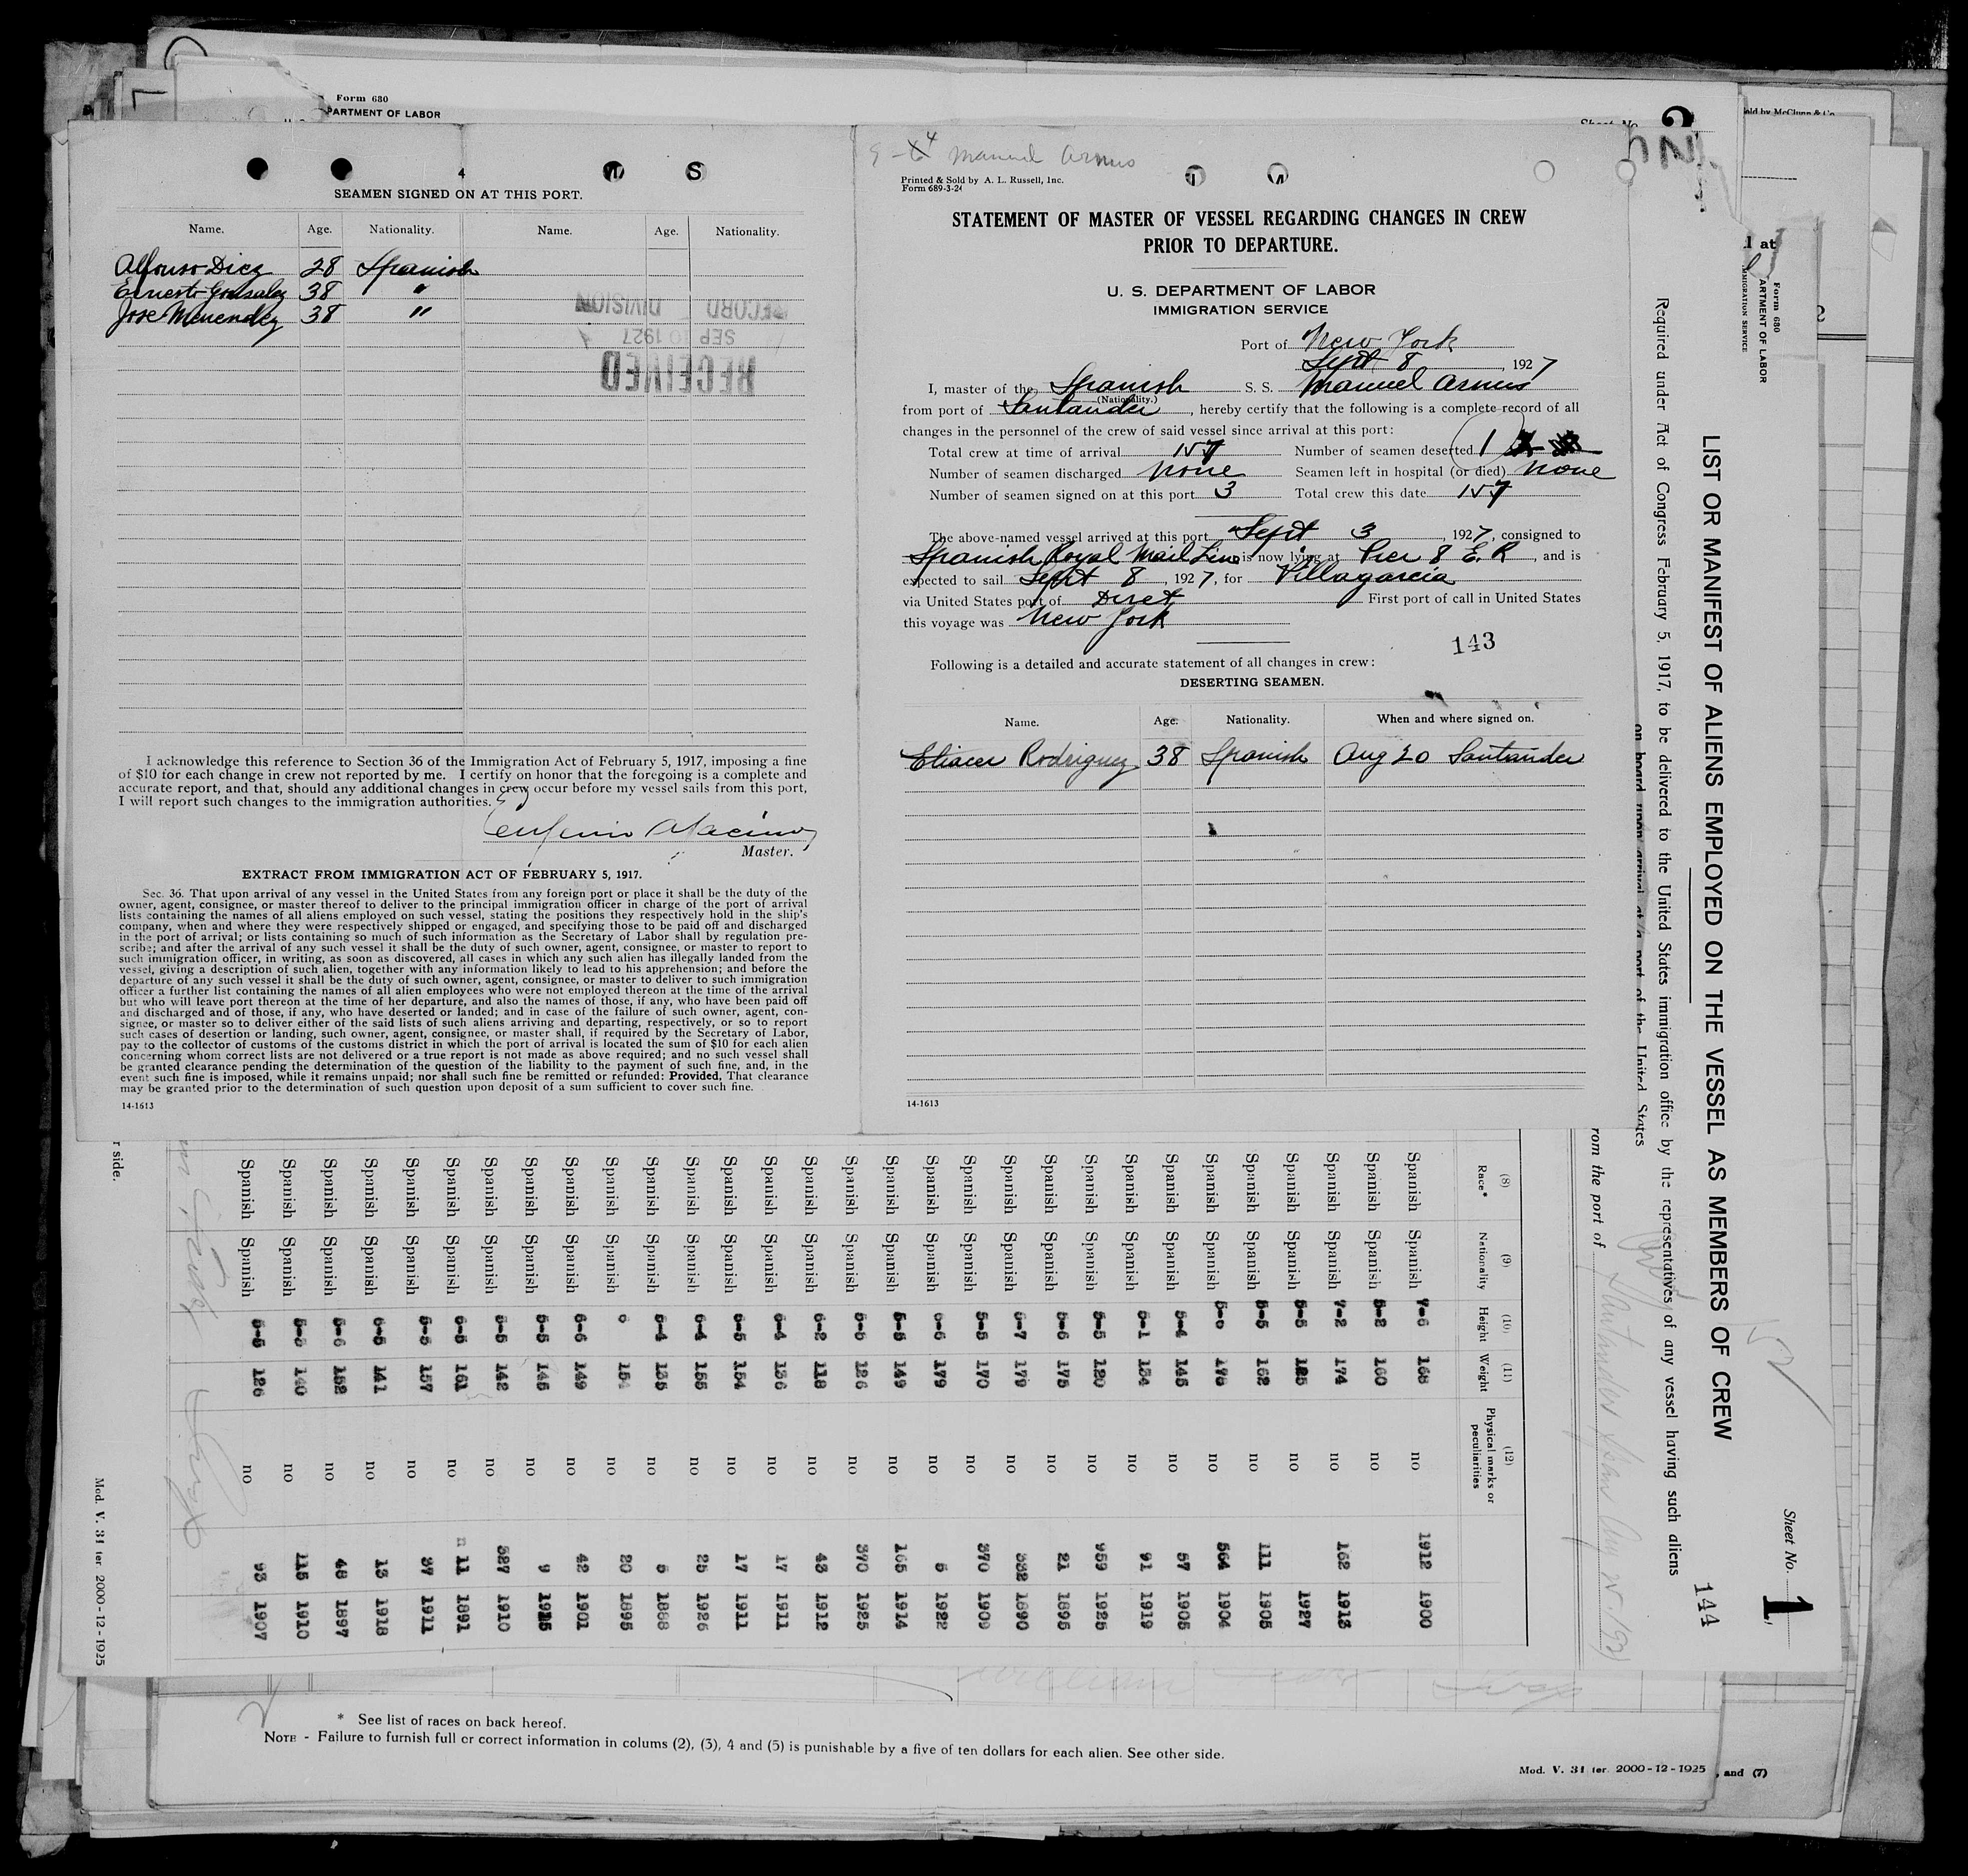 Form 680
PARTMENT OF LABOR
Sheet No. 2
4
SEAMEN SIGNED ON AT THIS PORT.
Name. Age. Nationality. Name. Age. Nationality.
Alfonso Diez 28 Spanish
Ernesto Gonsalez 38 "
Jose Menendez 38 "
RECORD DIVISION
SEP 10 1927
RECEIVED
I acknowledge this reference to Section 36 of the Immigration Act of February 5, 1917, imposing a fine
of $10 for each change in crew not reported by me. I certify on honor that the foregoing is a complete and
accurate report, and that, should any additional changes in crew occur before my vessel sails from this port,
I will report such changes to the immigration authorities.
Master.
EXTRACT FROM IMMIGRATION ACT OF FEBRUARY 5, 1917.
Sec. 36. That upon arrival of any vessel in the United States from any foreign port or place it shall be the duty of the
owner, agent, consignee, or master thereof to deliver to the principal immigration officer in charge of the port of arrival
lists containing the names of all aliens employed on such vessel, stating the positions they respectively hold in the ship's
company, when and where they were respectively shipped or engaged, and specifying those to be paid off and discharged
in the port of arrival; or lists containing so much of such information as the Secretary of Labor shall by regulation pre-
scribe; and after the arrival of any such vessel it shall be the duty of such owner, agent, consignee, or master to report to
such immigration officer, in writing, as soon as discovered, all cases in which any such alien has illegally landed from the
vessel, giving a description of such alien, together with any information likely to lead to his apprehension; and before the
departure of any such vessel it shall be the duty of such owner, agent, consignee, or master to deliver to such immigration
officer a further list containing the names of all alien employees who were not employed thereon at the time of the arrival
but who will leave port thereon at the time of her departure, and also the names of those, if any, who have been paid off
and discharged and of those, if any, who have deserted or landed; and in case of the failure of such owner, agent, con-
signee, or master so to deliver either of the said lists of such aliens arriving and departing, respectively, or so to report
such cases of desertion or landing, such owner, agent, consignee, or master shall, if required by the Secretary of Labor,
pay to the collector of customs of the customs district in which the port of arrival is located the sum of $10 for each alien
concerning whom correct lists are not delivered or a true report is not made as above required; and no such vessel shall
be granted clearance pending the determination of the question of the liability to the payment of such fine, and, in the
event such fine is imposed, while it remains unpaid; nor shall such fine be remitted or refunded: Provided, That clearance
may be granted prior to the determination of such question upon deposit of a sum sufficient to cover such fine.
14-1613
Manuel Arnus
Printed & Sold by A. L. Russell, Inc.
Form 689-3-24
STATEMENT OF MASTER OF VESSEL REGARDING CHANGES IN CREW
PRIOR TO DEPARTURE.
U. S. DEPARTMENT OF LABOR
IMMIGRATION SERVICE
Port of New York
Sept 8, 1927
I, master of the Spanish S. S. Manuel Arnus
(Nationality.)
from port of Santander, hereby certify that the following is a complete record of all
changes in the personnel of the crew of said vessel since arrival at this port:
Total crew at time of arrival 157 Number of seamen deserted 1
Number of seamen discharged None Seamen left in hospital (or died) None
Number of seamen signed on at this port 3 Total crew this date 157
The above-named vessel arrived at this port Sept 3, 1927, consigned to
Spanish Royal Mail Line is now lying at Pier 8 E. R, and is
expected to sail Sept 8, 1927, for Villagarcia
via United States port of Diret First port of call in United States
this voyage was New York
143
Following is a detailed and accurate statement of all changes in crew:
DESERTING SEAMEN.
Name. Age. Nationality. When and where signed on.
Eliacer Rodriguez 38 Spanish Aug 20 Santander
14-1613
Sheet No. 1
144
LIST OR MANIFEST OF ALIENS EMPLOYED ON THE VESSEL AS MEMBERS OF CREW
Required under Act of Congress February 5, 1917, to be delivered to the United States immigration office by the representatives of any vessel having such aliens
on board upon arrival at a port of the United States
rom the port of
(8) Race* (9) Nationality (10) Height (11) Weight (12) Physical marks or peculiarities
Spanish Spanish 168 no 1912 1900
Spanish Spanish 5-2 160 no
Spanish Spanish 174 no 162 1913
Spanish Spanish 5-5 125 no 1927
Spanish Spanish 5-5 162 no 111 1905
Spanish Spanish no 564 1904
Spanish Spanish 5-4 145 no 57 1905
Spanish Spanish 5-1 154 no 91 1919
Spanish Spanish 5-5 120 no 959 1925
Spanish Spanish 5-6 175 no 21 1895
Spanish Spanish 179 no 332 1890
Spanish Spanish 5-5 170 no 370 1909
Spanish Spanish 179 no 5 1922
Spanish Spanish 5-5 149 no 165 1914
Spanish Spanish 5-5 126 no 370 1925
Spanish Spanish 118 no 43 1912
Spanish Spanish 136 no 17 1911
Spanish Spanish 154 no 17 1911
Spanish Spanish 155 no 25 1926
Spanish Spanish 5-4 135 no 5 1888
Spanish Spanish 6 154 no 20 1895
Spanish Spanish 149 no 42 1901
Spanish Spanish 5-5 145 no 9 1925
Spanish Spanish 5-5 142 no 327 1910
Spanish Spanish 161 no 11 1891
Spanish Spanish 5-5 157 no 37 1911
Spanish Spanish 141 no 13 1918
Spanish Spanish 5-6 152 no 48 1897
Spanish Spanish 140 no 115 1910
Spanish Spanish 5-5 126 no 93 1907
r side.
Mod. V. 31 ter 2000-12-1925
* See list of races on back hereof.
NOTE - Failure to furnish full or correct information in colums (2), (3), 4 and (5) is punishable by a five of ten dollars for each alien. See other side.
Mod. V. 31 ter. 2000-12-1925
, and (7)
Form 680
ARTMENT OF LABOR
IMMIGRATION SERVICE